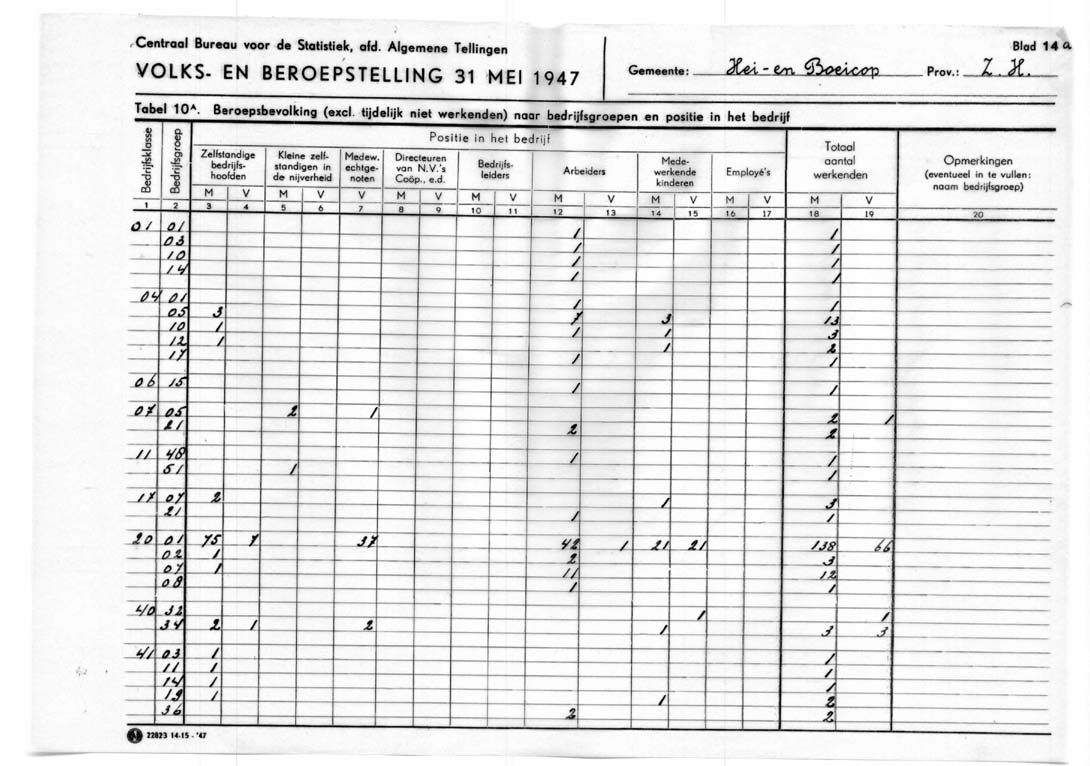 Centraal Bureau voor de Statistiek, afd. Algemene Tellingen
Blad 14 a
VOLKS- EN BEROEPSTELLING 31 MEI 1947
Gemeente: Hei- en Boeicop Prov.: Z. H.
Tabel 10A. Beroepsbevolking (excl. tijdelijk niet werkenden) naar bedrijfsgroepen en positie in het bedrijf
Bedrijfsklasse Bedrijfsgroep
Positie in het bedrijf
Zelfstandige bedrijfs-hoofden
Kleine zelf-standigen in de nijverheid
Medew. echtge-noten
Directeuren van N.V.'s Coöp., e.d.
Bedrijfs-leiders
Arbeiders
Mede-werkende kinderen
Employé's
Totaal aantal werkenden
Opmerkingen (eventueel in te vullen: naam bedrijfsgroep)
M V M V V M V M V M V M V M V M V
1 2 3 4 5 6 7 8 9 10 11 12 13 14 15 16 17 18 19 20
01 01 1 1
03 1 1
10 1 1
14 1 1
04 01 1 1
05 3 7 3 13
10 1 1 1 3
12 1 1 2
17 1 1
06 15 1 1
07 05 2 1 2 1
21 2 2
11 48 1 1
51 1 1
17 07 2 1 3
21 1 1
20 01 75 7 37 42 1 21 21 138 66
02 1 2 3
07 1 11 12
08 1 1
40 32 1 1
34 2 1 2 1 3 3
41 03 1 1
11 1 1
14 1 1
19 1 1 2
36 2 2
22823 14-15 - '47